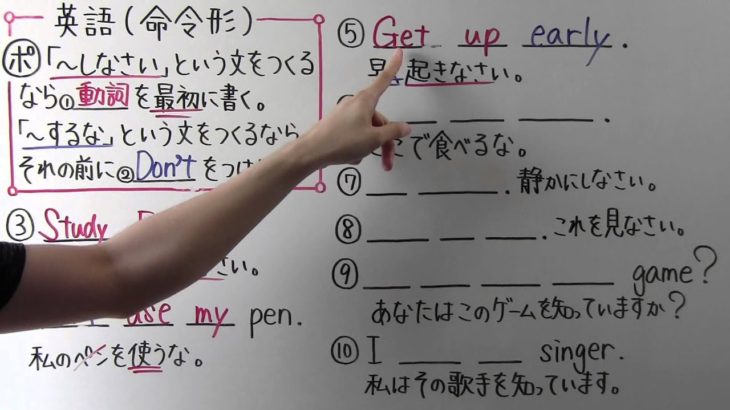 英語(命令形)
ポ「~しなさい」という文をつくる
なら①動詞を最初に書く。
「~するな」という文をつくるなら
それの前に②Don'tをつけ
③ Study
さい。
use my pen.
私のペンを使うな。
⑤ Get up early.
早く起きなさい。
ここで食べるな。
⑦ 静かにしなさい。
⑧ これを見なさい。
⑨ game?
あなたはこのゲームを知っていますか?
⑩ I singer.
私はその歌手を知っています。